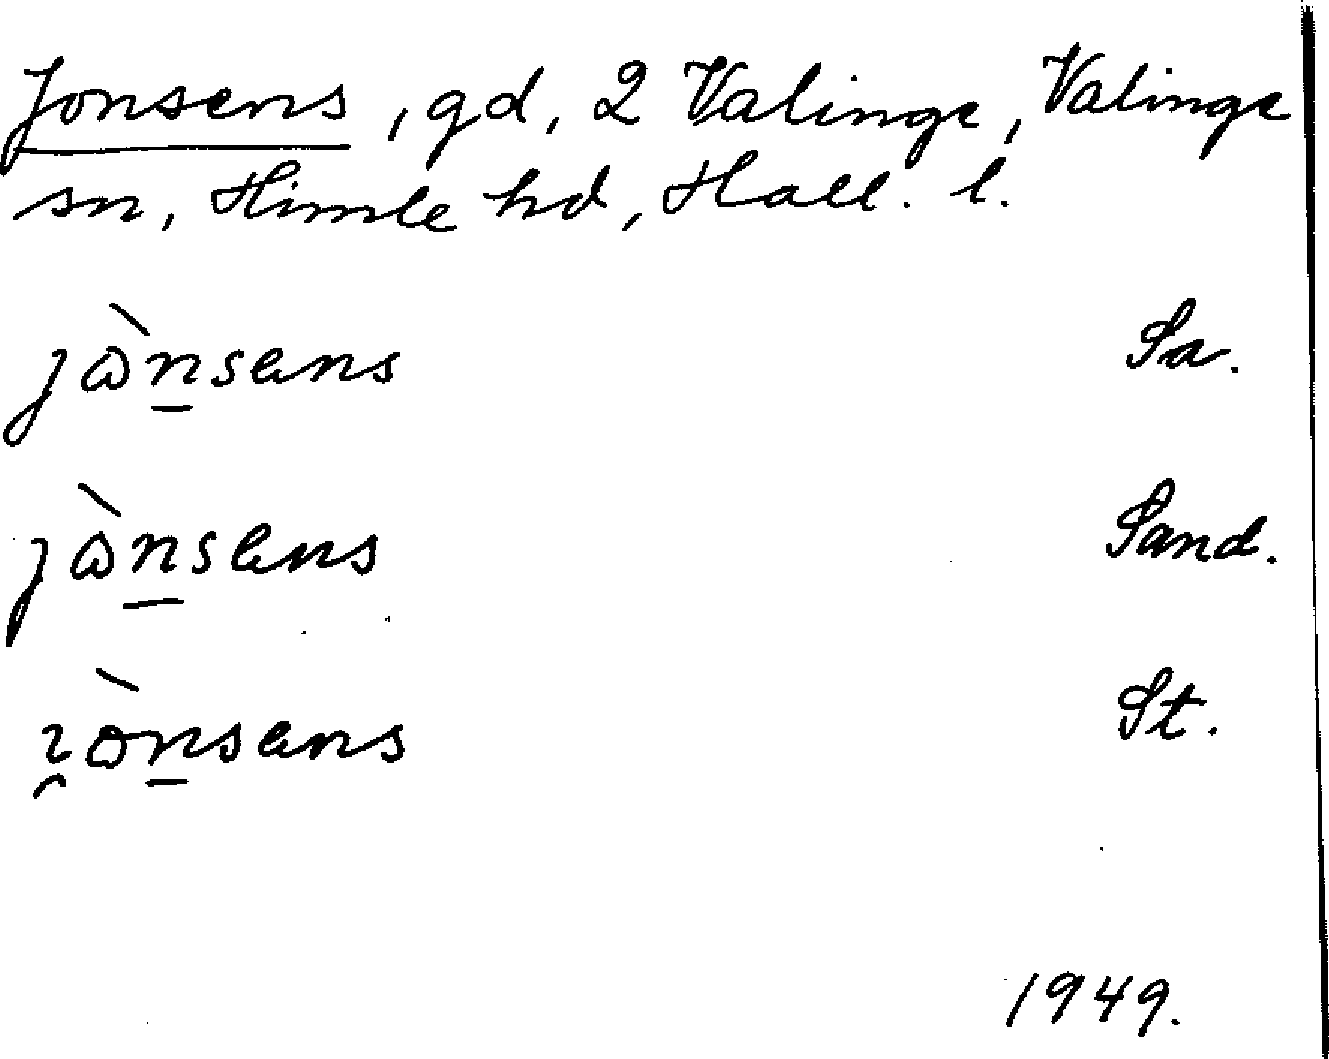 Jonsens, gd, 2 Valinge, Valinge
sn, Himle hd, Hall. l.
jɷ̀n̲sens Sa.
jɷ̀n̲sens Sand.
ɩ̯ɷ̀n̲sens St.
1949.